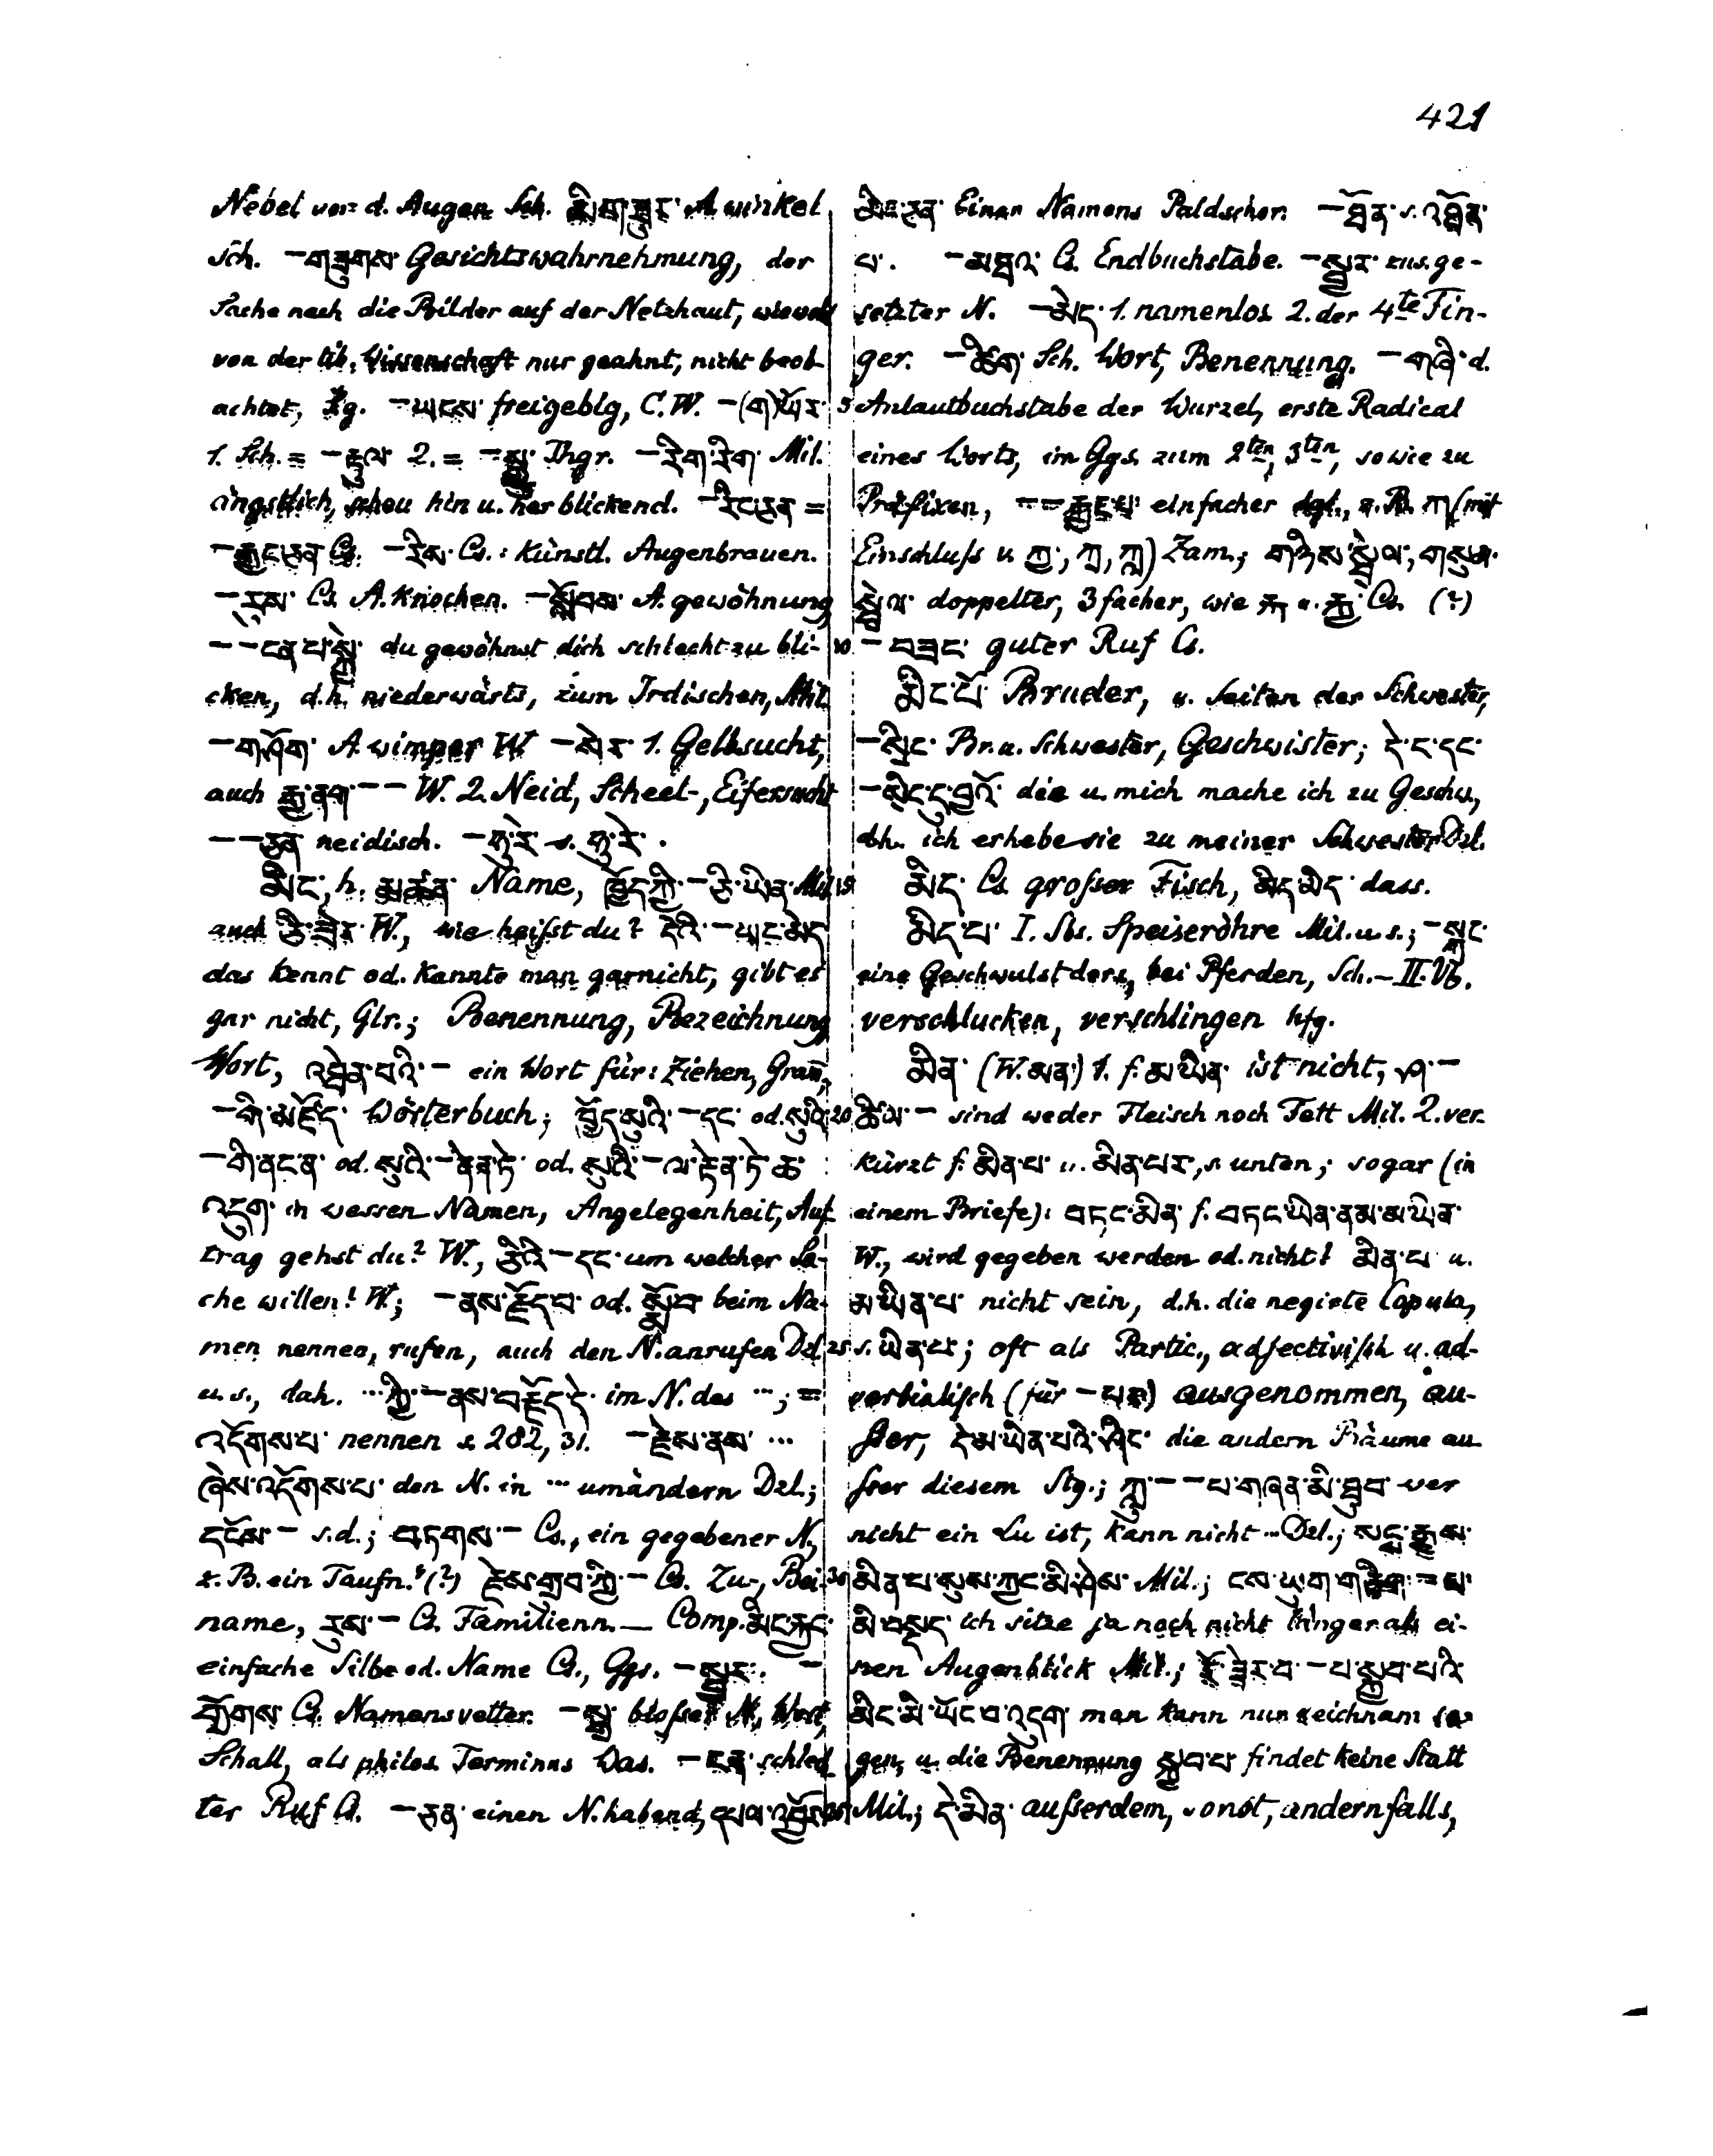 421
Nebel vor d. Augen Sch. མིག་ཟུར་ A. winkel
Sch. –གཟུགས་ Gesichtswahrnehmung, der
Sache nach die Bilder auf der Netzhaut, wiewohl
von der tib. Wissenschaft nur geahnt, nicht beob-
achtet, –ཡངས་ freigeblg, C.W. –(ག)ཡོར་
1. Sch. = –རྫུལ་ 2. = Thgr. –རིག་རིག་ Mil.
ängstlich, scheu hin u. her blickend. –རིང་ཅན =
–རྒྱང་ཅན Cs. –རིས་ Cs.: künstl. Augenbrauen.
–རུས་ Cs. A. knochen. –སློབས་ A. gewöhnung
– –ངན་པ་ du gewöhnst dich schlecht zu bli-
cken, d.h. niederwärts, zum Irdischen, Mil.
–གཤོག་ A. wimper W. –སེར་ 1. Gelbsucht,
auch རྒྱ་ནག་ – – W. 2. Neid, Scheel-, Eifersucht
– –ཅན neidisch. –ཧུ་རེ་ s. ཧུ་རེ་.
མིང་, h. མཚན་ Name, ཁྱོད་ཀྱི་–ཅི་ཡིན་ Mil.
auch ཅི་ཟེར་ W., wie heißt du? དེའི་–ཡང་མེད་
das kennt od. kannte man garnicht, gibt es
gar nicht, Glr.; Benennung, Bezeichnung
Wort, འདྲེན་པའི་– ein Wort für: Ziehen, Gram.,
–གི་མཛོད་ Wörterbuch; ཁྱོད་སུའི་–དང་ od. སུའི་
–གི་ནང་ན་ od. སུའི་–ནེན་ཏེ་ od. སུའི་–ལ་རྟེན་ཏེ་ཆ་
འདུག་ in wessen Namen, Angelegenheit, Auf-
trag gehst du? W., ཅིའི་–དང་ um welcher Sa-
che willen? W.; –ནས་རྗོད་པ་ od. སྨོ་བ་ beim Na-
men nennen, rufen, auch den N. anrufen Dzl.
u. s., dah. ...ཀྱི་–ནས་བརྗོད་དེ་ im N. des ...; =
འདོགས་པ་ nennen s. 282, 31. –རྗེས་ནས་ ...
ཞེས་འདོགས་པ་ den N. in ... umändern Dzl.;
དངོས་– s.d.; བཏགས་– Cs., ein gegebener N.,
z.B. ein Taufn.? (?) རྗེས་གྲུབ་ཀྱི་– Cs. Zu-, Bei-
name, རུས་– Cs. Familienn. — Comp. མིང་རྐྱང་
einfache Silbe od. Name Cs., Ggs. –སྦྱར་. –
གྲོགས་ Cs. Namensvetter. –སྒྲ་ bloßer N., Wort,
Schall, als philos. Terminus Was. –ངན་ schlech-
ter Ruf Cs. –ཅན་ einen N. habend, དཔལ་འབྱོར་
མིང་ཅན་ Einen Namens Paldschor. –ཐོན་ s. འཐོན་
པ་. –མཐའ་ Cs. Endbuchstabe. –སྦྱར་ zus. ge-
setzter N. –མེད་ 1. namenlos 2. der 4te Fin-
ger. –ཚིག་ Sch. Wort, Benennung. –གཞི་ d.
5 Anlautbuchstabe der Wurzel, erste Radical
eines Worts, im Ggs. zum 2ten, 3ten, sowie zu
Präfixen, – –རྐྱང་པ་ einfacher dgl., z.B. ཀ (mit
Einschluß v. ཀྱ་, ཀྲ, ཀླ) Zam.; གཉིས་སྦྲེལ་, གསུམ་
སྦྲེལ་ doppelter, 3facher, wie རྐ u. རྐྱ་ Cs. (?)
10 –བཟང་ guter Ruf Cs.
མིང་པོ་ Bruder, v. Seiten der Schwester,
–སྲིང་ Br. u. Schwester, Geschwister; དེ་ང་དང་
–སྲིང་དུ་བྱའོ་ die u. mich mache ich zu Geschw.,
d.h. ich erhebe sie zu meiner Schwester Dzl.
15 མིད་ Cs. großer Fisch, མིད་མིད་ dass.
མིད་པ་ I. Sbs. Speiseröhre Mil. u. s.; –སྐྲང་
eine Geschwulst ders., bei Pferden, Sch. – II. Vb.
verschlucken, verschlingen hfg.
མིན་ (W. མན་) 1. f. མ་ཡིན་ ist nicht, ཤ་–
20 ཚིལ་– sind weder Fleisch noch Fett Mil. 2. ver-
kürzt f. མིན་པ་ u. མིན་པར་, s. unten; sogar (in
einem Briefe): བཏང་མིན་ f. བཏང་ཡིན་ནམ་མ་ཡིན་
W., wird gegeben werden od. nicht? མིན་པ་ u.
མ་ཡིན་པ་ nicht sein, d.h. die negirte Copula,
25 s. ཡིན་པ་; oft als Partic., adjectivisch u. ad-
verbialisch (für –པར་) ausgenommen, au-
ßer, དེ་མ་ཡིན་པའི་ཤིང་ die andern Bäume au-
ßer diesem Stg.; ཀླུ་– –པ་གཞན་མི་ཐུབ་ wer
nicht ein Lu ist, kann nicht ... Dzl.; སངྶ་རྒྱས་
30 མིན་པ་སུས་ཀྱང་མི་ཤེས་ Mil.; ངས་ཡུག་གཅིག་ –པ་
མི་བསྡད་ ich sitze ja noch nicht länger als ei-
nen Augenblick Mil.; རོ་ཟེར་བ་–པ་སྐྱབ་པའི་
མིང་མི་ཡོང་བ་འདུག་ man kann nur Leichnam sa-
gen, u. die Benennung སྐྱབ་པ་ findet keine Statt
35 Mil.; དེ་མིན་ außerdem, sonst, andernfalls,